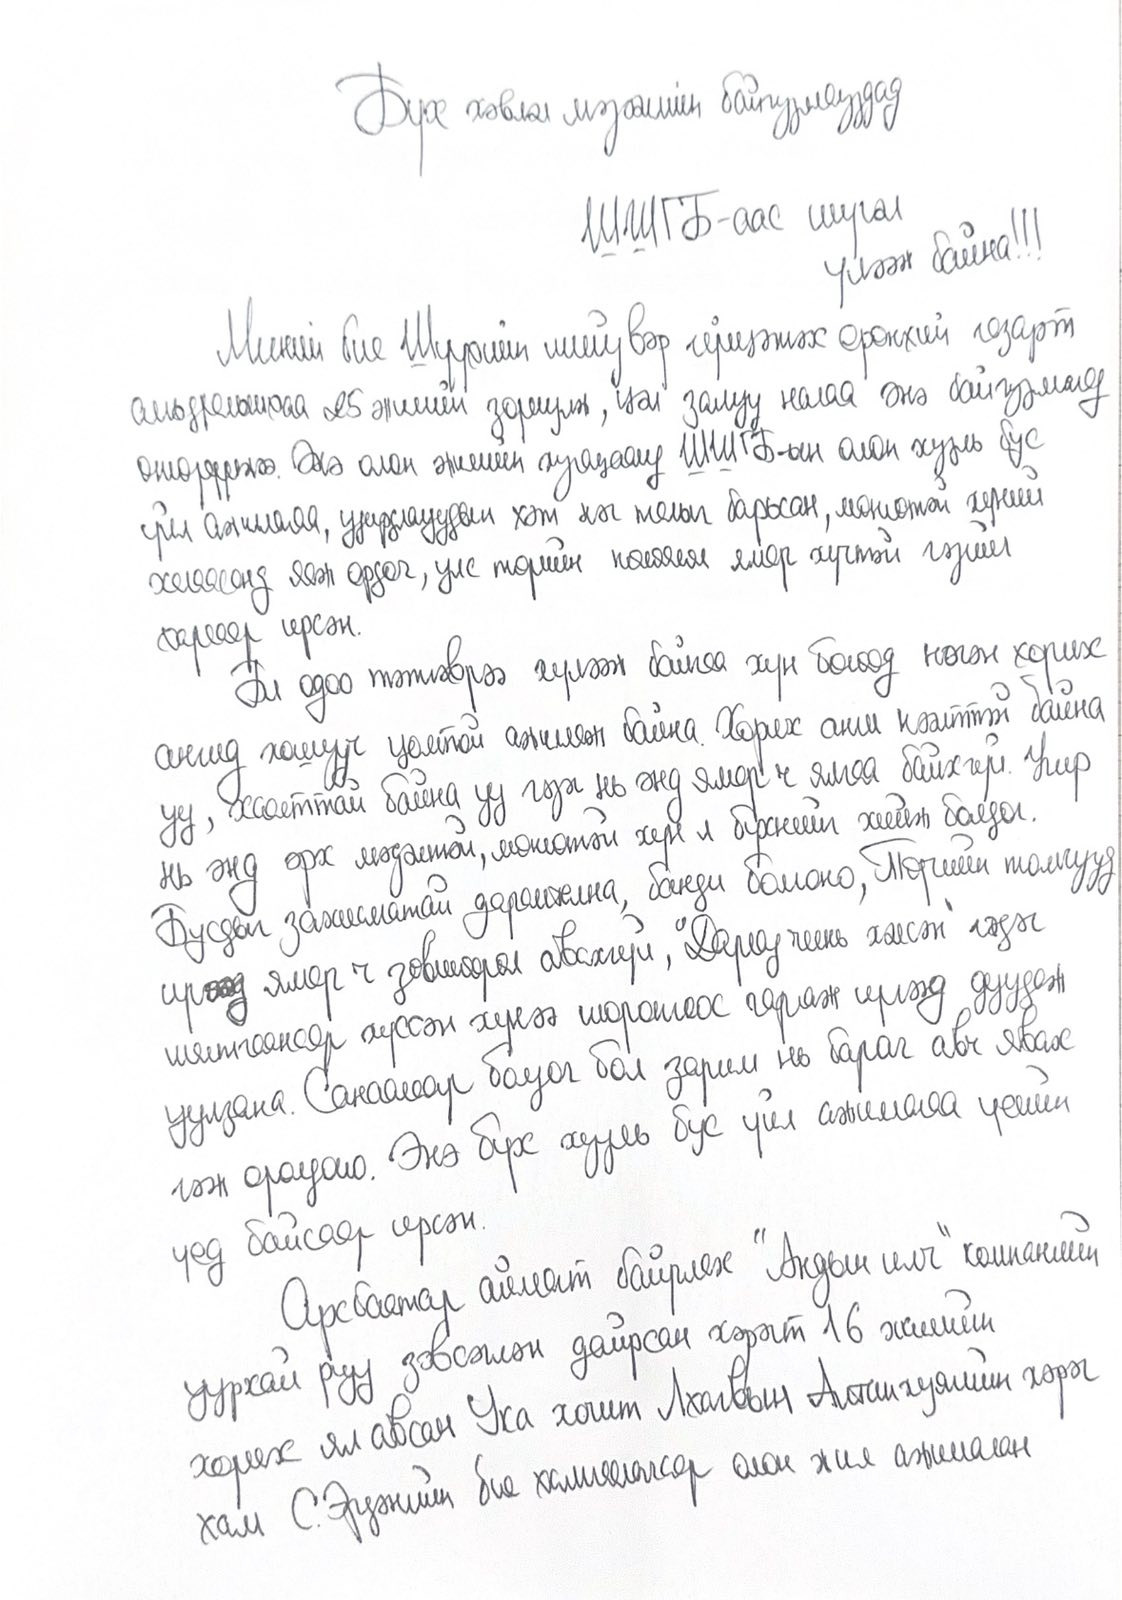 Бүх хэвлэл мэдээллийн байгууллагуудад
ШШГЕГ-аас шугал
үлээж байна!!!
Миний бие Шүүхийн шийдвэр гүйцэтгэх ерөнхий газарт
амьдралынхаа 25 жилийг зориулж, цэл залуу насаа энэ байгууллагад
өнгөрүүлжээ. Энэ олон жилийн хугацаанд ШШГЕГ-ын олон хууль бус
үйл ажиллагаа, удирдлагуудын хэт нэг талыг барьсан, мөнгөтэй хүний
халаасанд яаж ордог, улс төрийн нөлөөлөл ямар хүчтэй гэдгийг
харсаар ирсэн.
Би одоо тэтгэврээ хүлээж байгаа хүн бөгөөд нэгэн хорих
ангид хошууч цолтой ажиллаж байна. Хорих анги нээлттэй байна
уу, хаалттай байна уу гэдэг нь энд ямар ч ялгаа байхгүй. Учир
нь энд эрх мэдэлтэй, мөнгөтэй хүн л бүхнийг хийж болдог.
Бусдыг захиалгатай дарамжилна, банди болгоно, Төрийн томчууд
ирээд ямар ч зөвшөөрөл авахгүй, "Дарга чинь хэлсэн" гэдэг
шалтгаанаар хүссэн хүнээ шоронгоос гаргаж ирээд дуудаж
уулзана. Санаагаар болдог бол зарим нь бараг авч явах
гэж оролдоно. Энэ бүх хууль бус үйл ажиллагаа үеийн
үед байсаар ирсэн.
Архбаатар аймагт байрлах "Андын илч" компанийн
уурхай руу зэвсэглэн дайрсан хэрэгт 16 жилийн
хорих ял авсан Ука хочит Лхагвын Алтанхуягийн хэрэг
хам С.Эрдэнийн бие хамгаалагчаар олон жил ажилласан